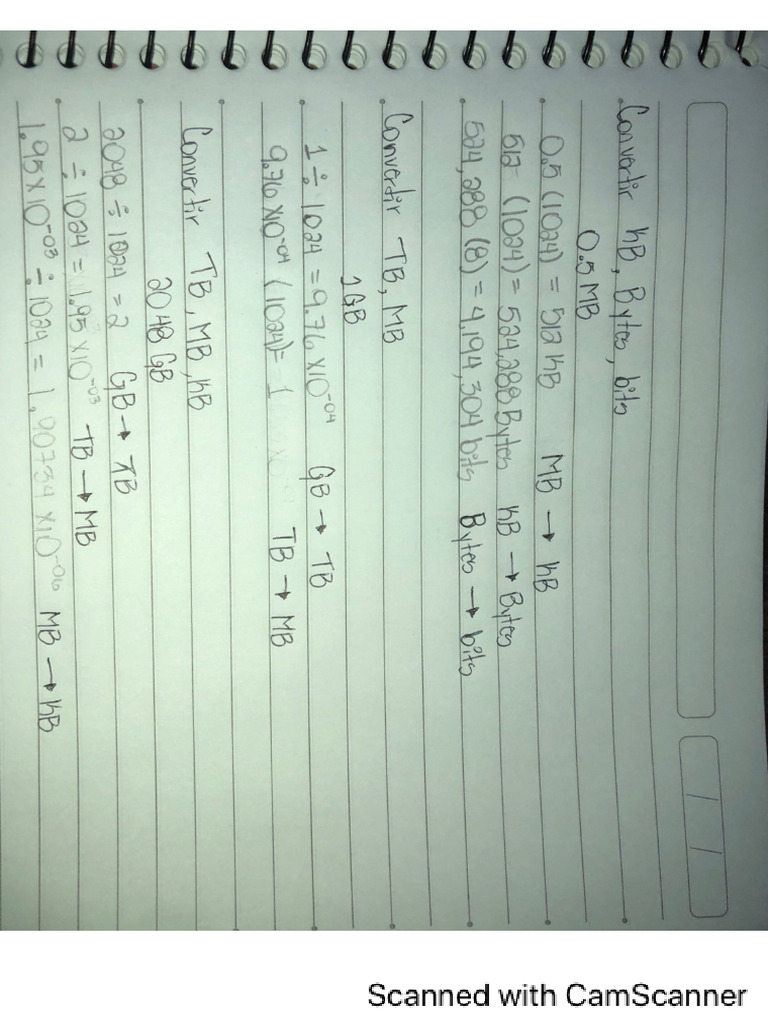 Convertir kB, Bytes, bits
0.5 MB
0.5 (1024) = 512 kB MB → kB
512 (1024) = 524,288 Bytes kB → Bytes
524,288 (8) = 4,194,304 bits Bytes → bits
Convertir TB, MB
1 GB
1 ÷ 1024 = 9.76 x10⁻⁰⁴ GB → TB
9.76 x10⁻⁰⁴ (1024) = 1 TB → MB
Convertir TB, MB, kB
2048 GB
2048 ÷ 1024 = 2 GB → TB
2 ÷ 1024 = 1.95 x10⁻⁰³ TB → MB
1.95 x10⁻⁰³ ÷ 1024 = 1.90734 x10⁻⁰⁶ MB → kB
Scanned with CamScanner